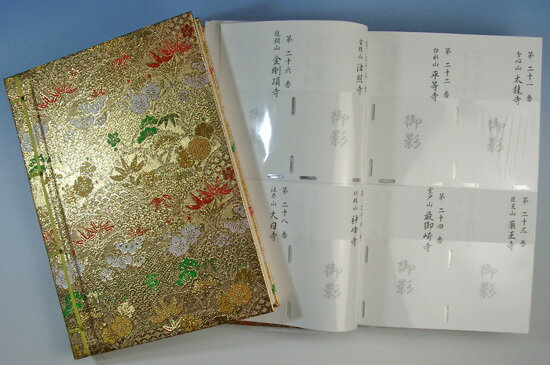 第二十一番
舎心山 太龍寺
御影
第二十二番
白水山 平等寺
御影
第二十三番
医王山 薬王寺
御影
第二十四番
室戸山 最御崎寺
御影
津照寺
竹林山 神峰寺
第二十六番
龍頭山 金剛頂寺
御影
第二十八番
法界山 大日寺
御影